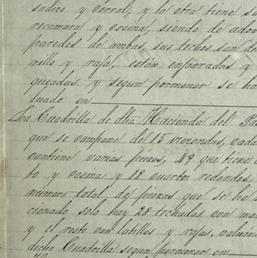 sadizo y corral, y la otra tiene sa
recamara y cocina, siendo de adov
paredes de ambas, sus techos son de
y raja, están enjarradas y
queadas y segun pormenor se ha
luado en
La Cuadrilla de dha Hacienda del
que se compone de 15 viviendas, cada
contiene varias piezas, 49 que tiene
to y cocina y 18 cuartos redondos
numero total de piezas que se ha
cionado, solo hay 28 techadas con
y el resto con latilla y raja,
dicha Cuadrilla segun pormenor en